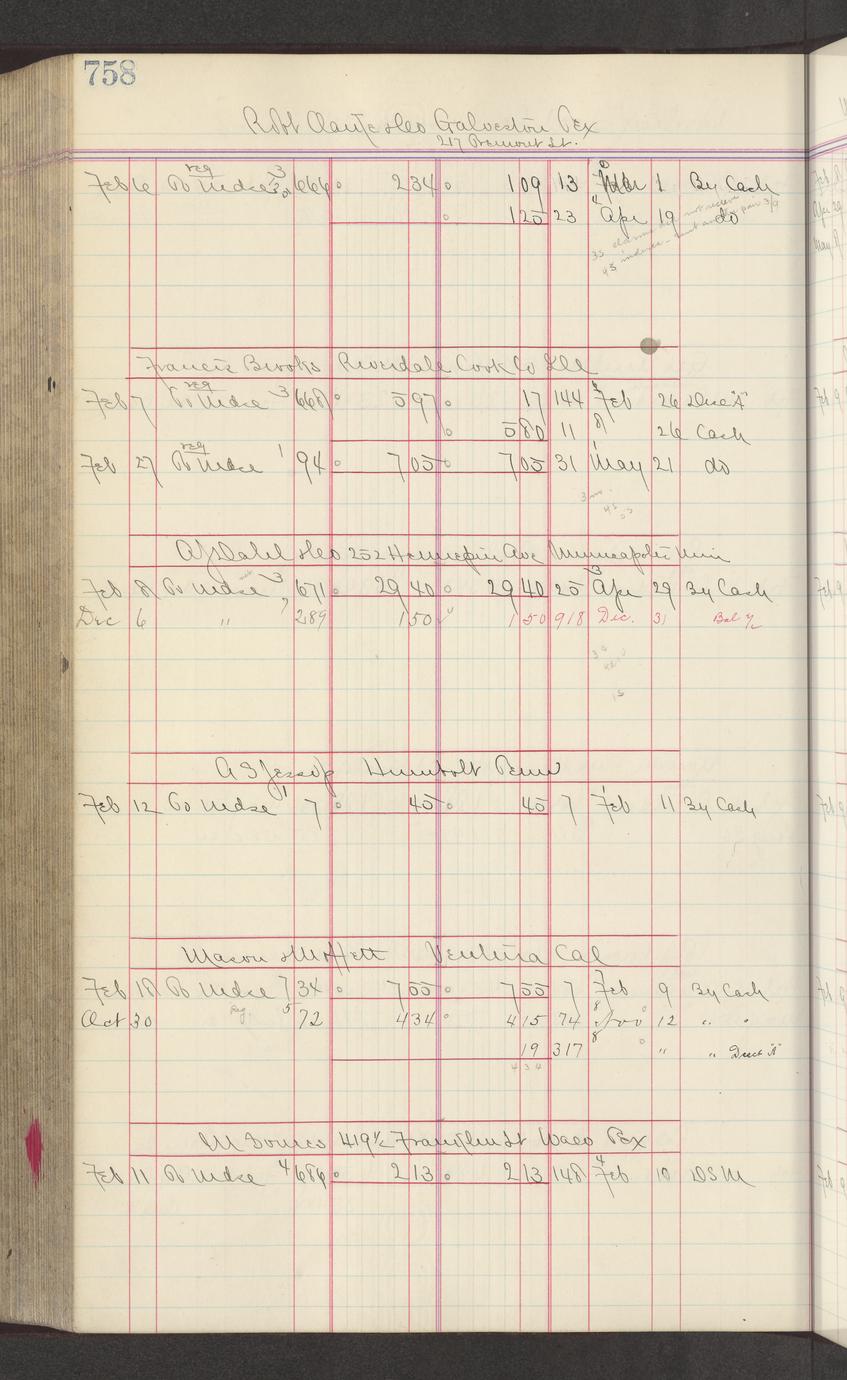 758
Galveston Tex
217 Tremont St.
Feb 6 To Mdse 3 666 2 34 1 09 13 Mar 1 By Cash
1 25 23 Apr 19 do
Francis Brooks Riverdale Cook Co Ill
Feb 7 To Mdse 3 668 5 97 17 144 Feb 26 Disc "A"
5 80 11 8 26 Cash
Feb 27 To Mdse 1 94 7 05 7 05 31 May 21 do
252 Hennepin Ave Minneapolis Minn
Feb 8 To Mdse 3 671 29 40 29 40 25 Apr 29 By Cash
Dec 6 " 289 1 50 1 50 918 Dec. 31 Bal
A S Jessop Humbolt Penn
Feb 12 To Mdse 1 7 45 45 7 Feb 11 By Cash
Mason & Moffett Ventura Cal
Feb 18 To Mdse 7 34 7 55 7 55 7 Feb 9 By Cash
Oct 30 Reg. 5 72 4 34 4 15 74 8 Nov 12 " "
19 317 8 " " Disct "A"
4 34
419½ Franklin St Waco Tex
Feb 11 To Mdse 4 686 2 13 2 13 148 4 Feb 10 DSM